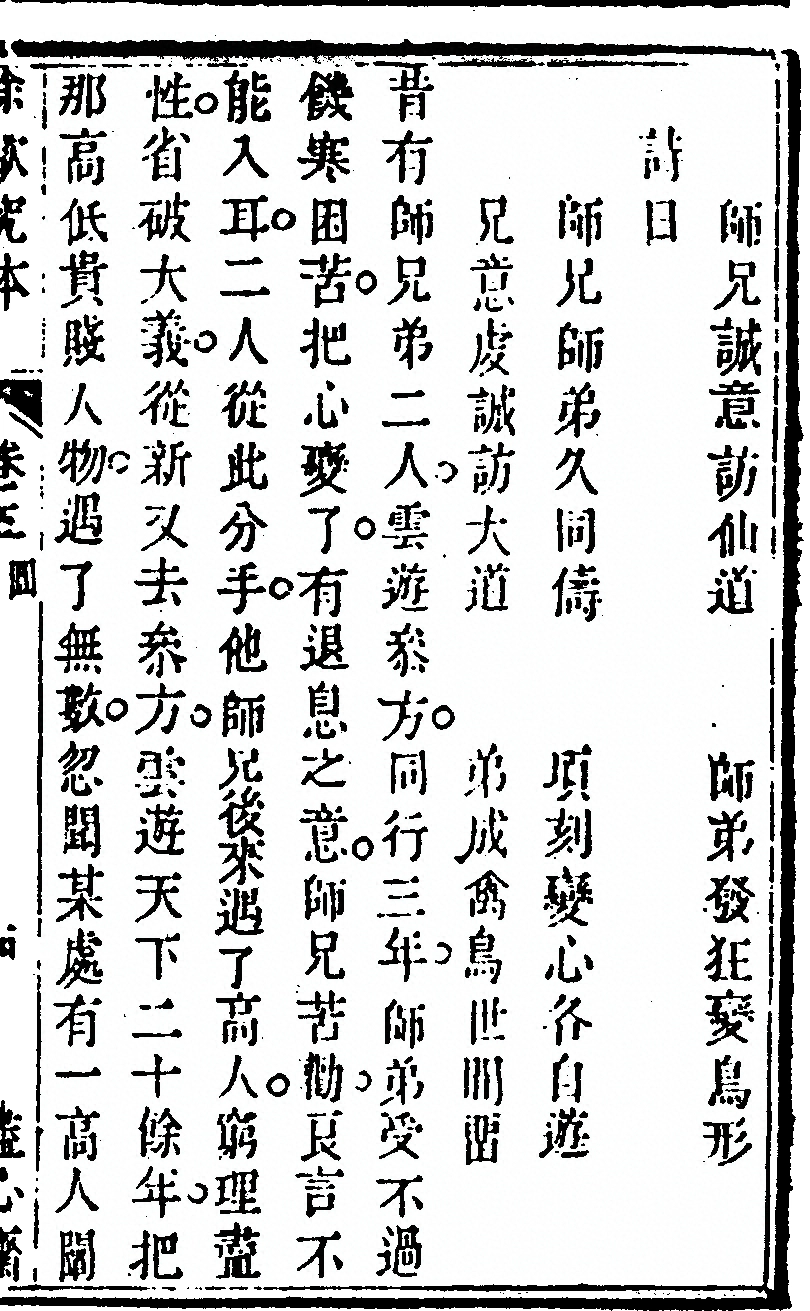 師兄誠意訪仙道　師弟發狂變鳥形
詩曰
師兄師弟久同儔　頃刻變心各自遊
兄意虔誠訪大道　弟成禽鳥世間畱
昔有師兄弟二人○雲遊叅方○同行三年○師弟受不過
饑寒困苦○把心變了○有退息之意○師兄苦勸○哀言不
能入耳○二人從此分手○他師兄後來遇了高人○窮理盡
性○省破大義○從新又去叅方○雲遊天下二十餘年○把
那高低貴賤人物○遇了無數○忽聞某處有一高人闡